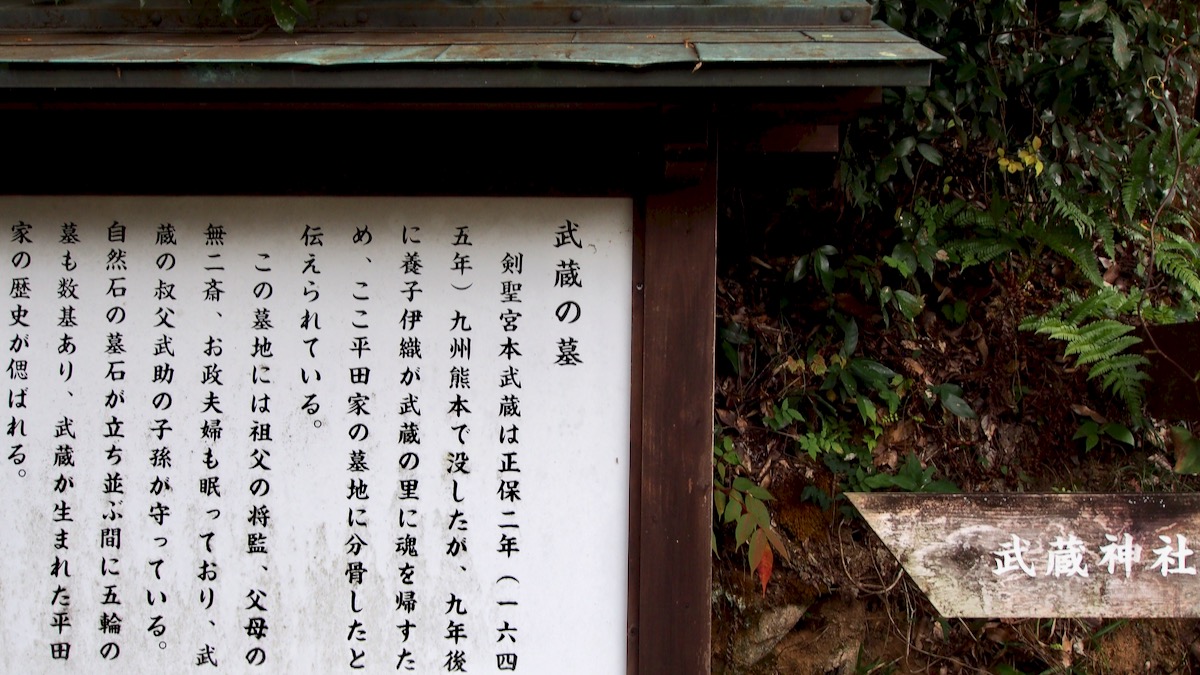 武蔵の墓
剣聖宮本武蔵は正保二年（一六四
五年）九州熊本で没したが、九年後
に養子伊織が武蔵の里に魂を帰すた
め、ここ平田家の墓地に分骨したと
伝えられている。
この墓地には祖父の将監、父母の
無二斎、お政夫婦も眠っており、武
蔵の叔父武助の子孫が守っている。
自然石の墓石が立ち並ぶ間に五輪の
墓も数基あり、武蔵が生まれた平田
家の歴史が偲ばれる。
武蔵神社